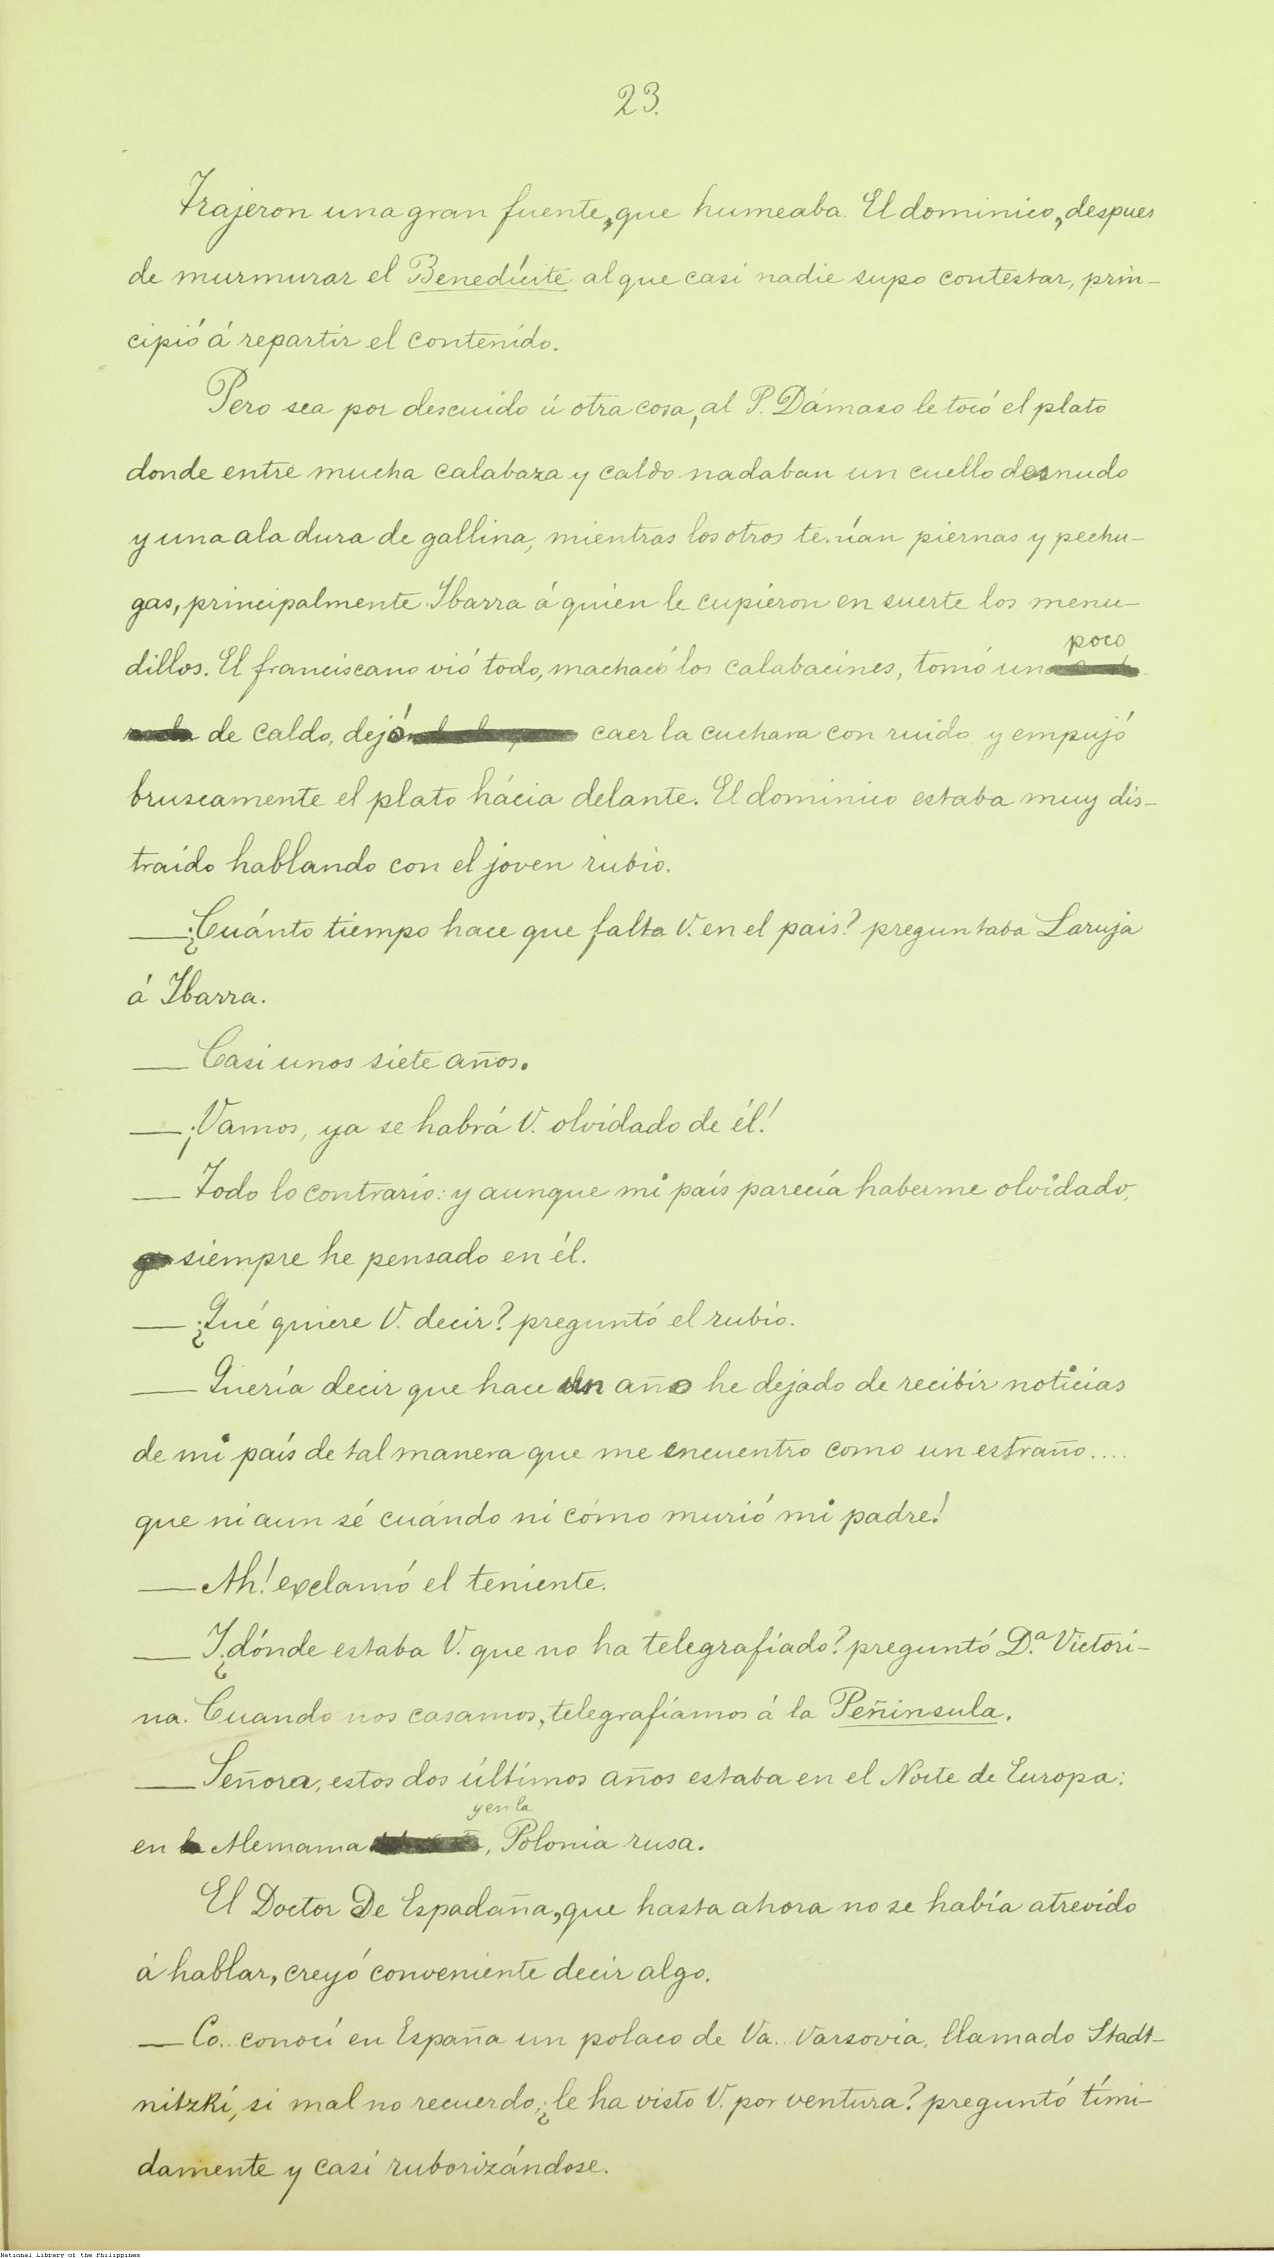 23.
Trajeron una gran fuente, que humeaba. El dominico, despues
de murmurar el Benedícite al que casi nadie supo contestar, prin-
cipió á repartir el contenido.
Pero sea por descuido ú otra cosa, al P. Dámaso le tocó el plato
donde entre mucha calabaza y caldo nadaban un cuello desnudo
y una ala dura de gallina, mientras los otros tenían piernas y pechu-
gas, principalmente Ibarra á quien le cupieron en suerte los menu-
dillos. El franciscano vió todo, machacó los calabacines, tomó un
poco
de caldo, dejó caer la cuchara con ruido y empujó
bruscamente el plato hácia delante. El dominico estaba muy dis-
traido hablando con el joven rubio.
— ¿Cuánto tiempo hace que falta V. en el pais? preguntaba Laruja
á Ibarra.
— Casi unos siete años.
— ¡Vamos, ya se habrá V. olvidado de él!
— Todo lo contrario: y aunque mi país parecía haberme olvidado,
siempre he pensado en él.
— ¿Qué quiere V. decir? preguntó el rubio.
— Quería decir que hace un año he dejado de recibir noticias
de mi país de tal manera que me encuentro como un estraño....
que ni aun sé cuándo ni cómo murió mi padre!
— Ah! exclamó el teniente.
— Y ¿dónde estaba V. que no ha telegrafiado? preguntó D.ª Victori-
na. Cuando nos casamos, telegrafíamos á la Peñinsula.
— Señora, estos dos últimos años estaba en el Norte de Europa:
y en la
en Alemania, Polonia rusa.
El Doctor De Espadaña, que hasta ahora no se había atrevido
á hablar, creyó conveniente decir algo.
— Co.. conocí en España un polaco de Va.. Varsovia, llamado Stadt-
nitzki, si mal no recuerdo, ¿le ha visto V. por ventura? preguntó tími-
damente y casi ruborizándose.
National Library of the Philippines